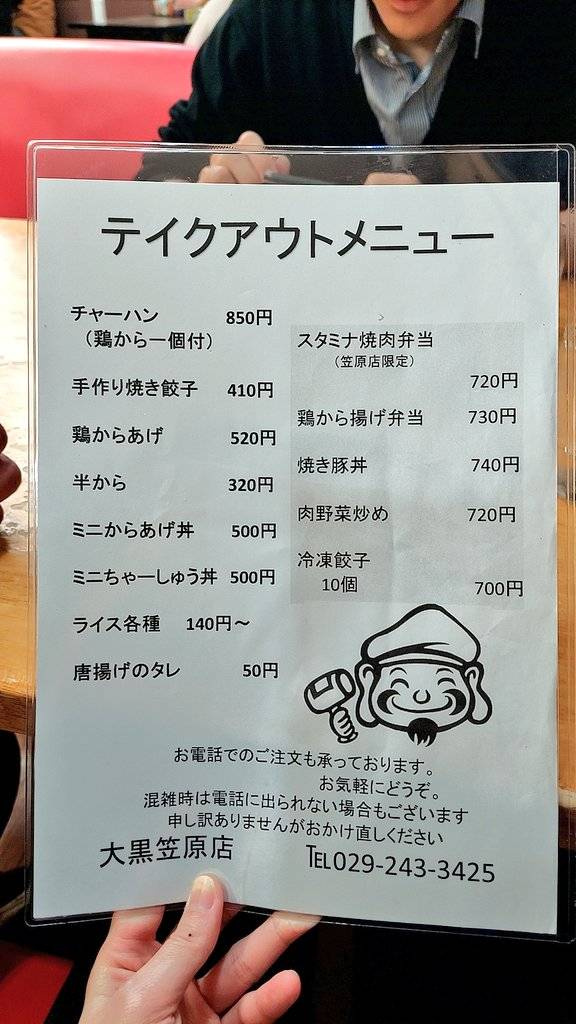 テイクアウトメニュー
チャーハン 850円
（鶏から一個付）
手作り焼き餃子 410円
鶏からあげ 520円
半から 320円
ミニからあげ丼 500円
ミニちゃーしゅう丼 500円
ライス各種 140円～
唐揚げのタレ 50円
スタミナ焼肉弁当
（笠原店限定）
720円
鶏から揚げ弁当 730円
焼き豚丼 740円
肉野菜炒め 720円
冷凍餃子
10個 700円
お電話でのご注文も承っております。
お気軽にどうぞ。
混雑時は電話に出られない場合もございます
申し訳ありませんがおかけ直しください
大黒笠原店 TEL029-243-3425